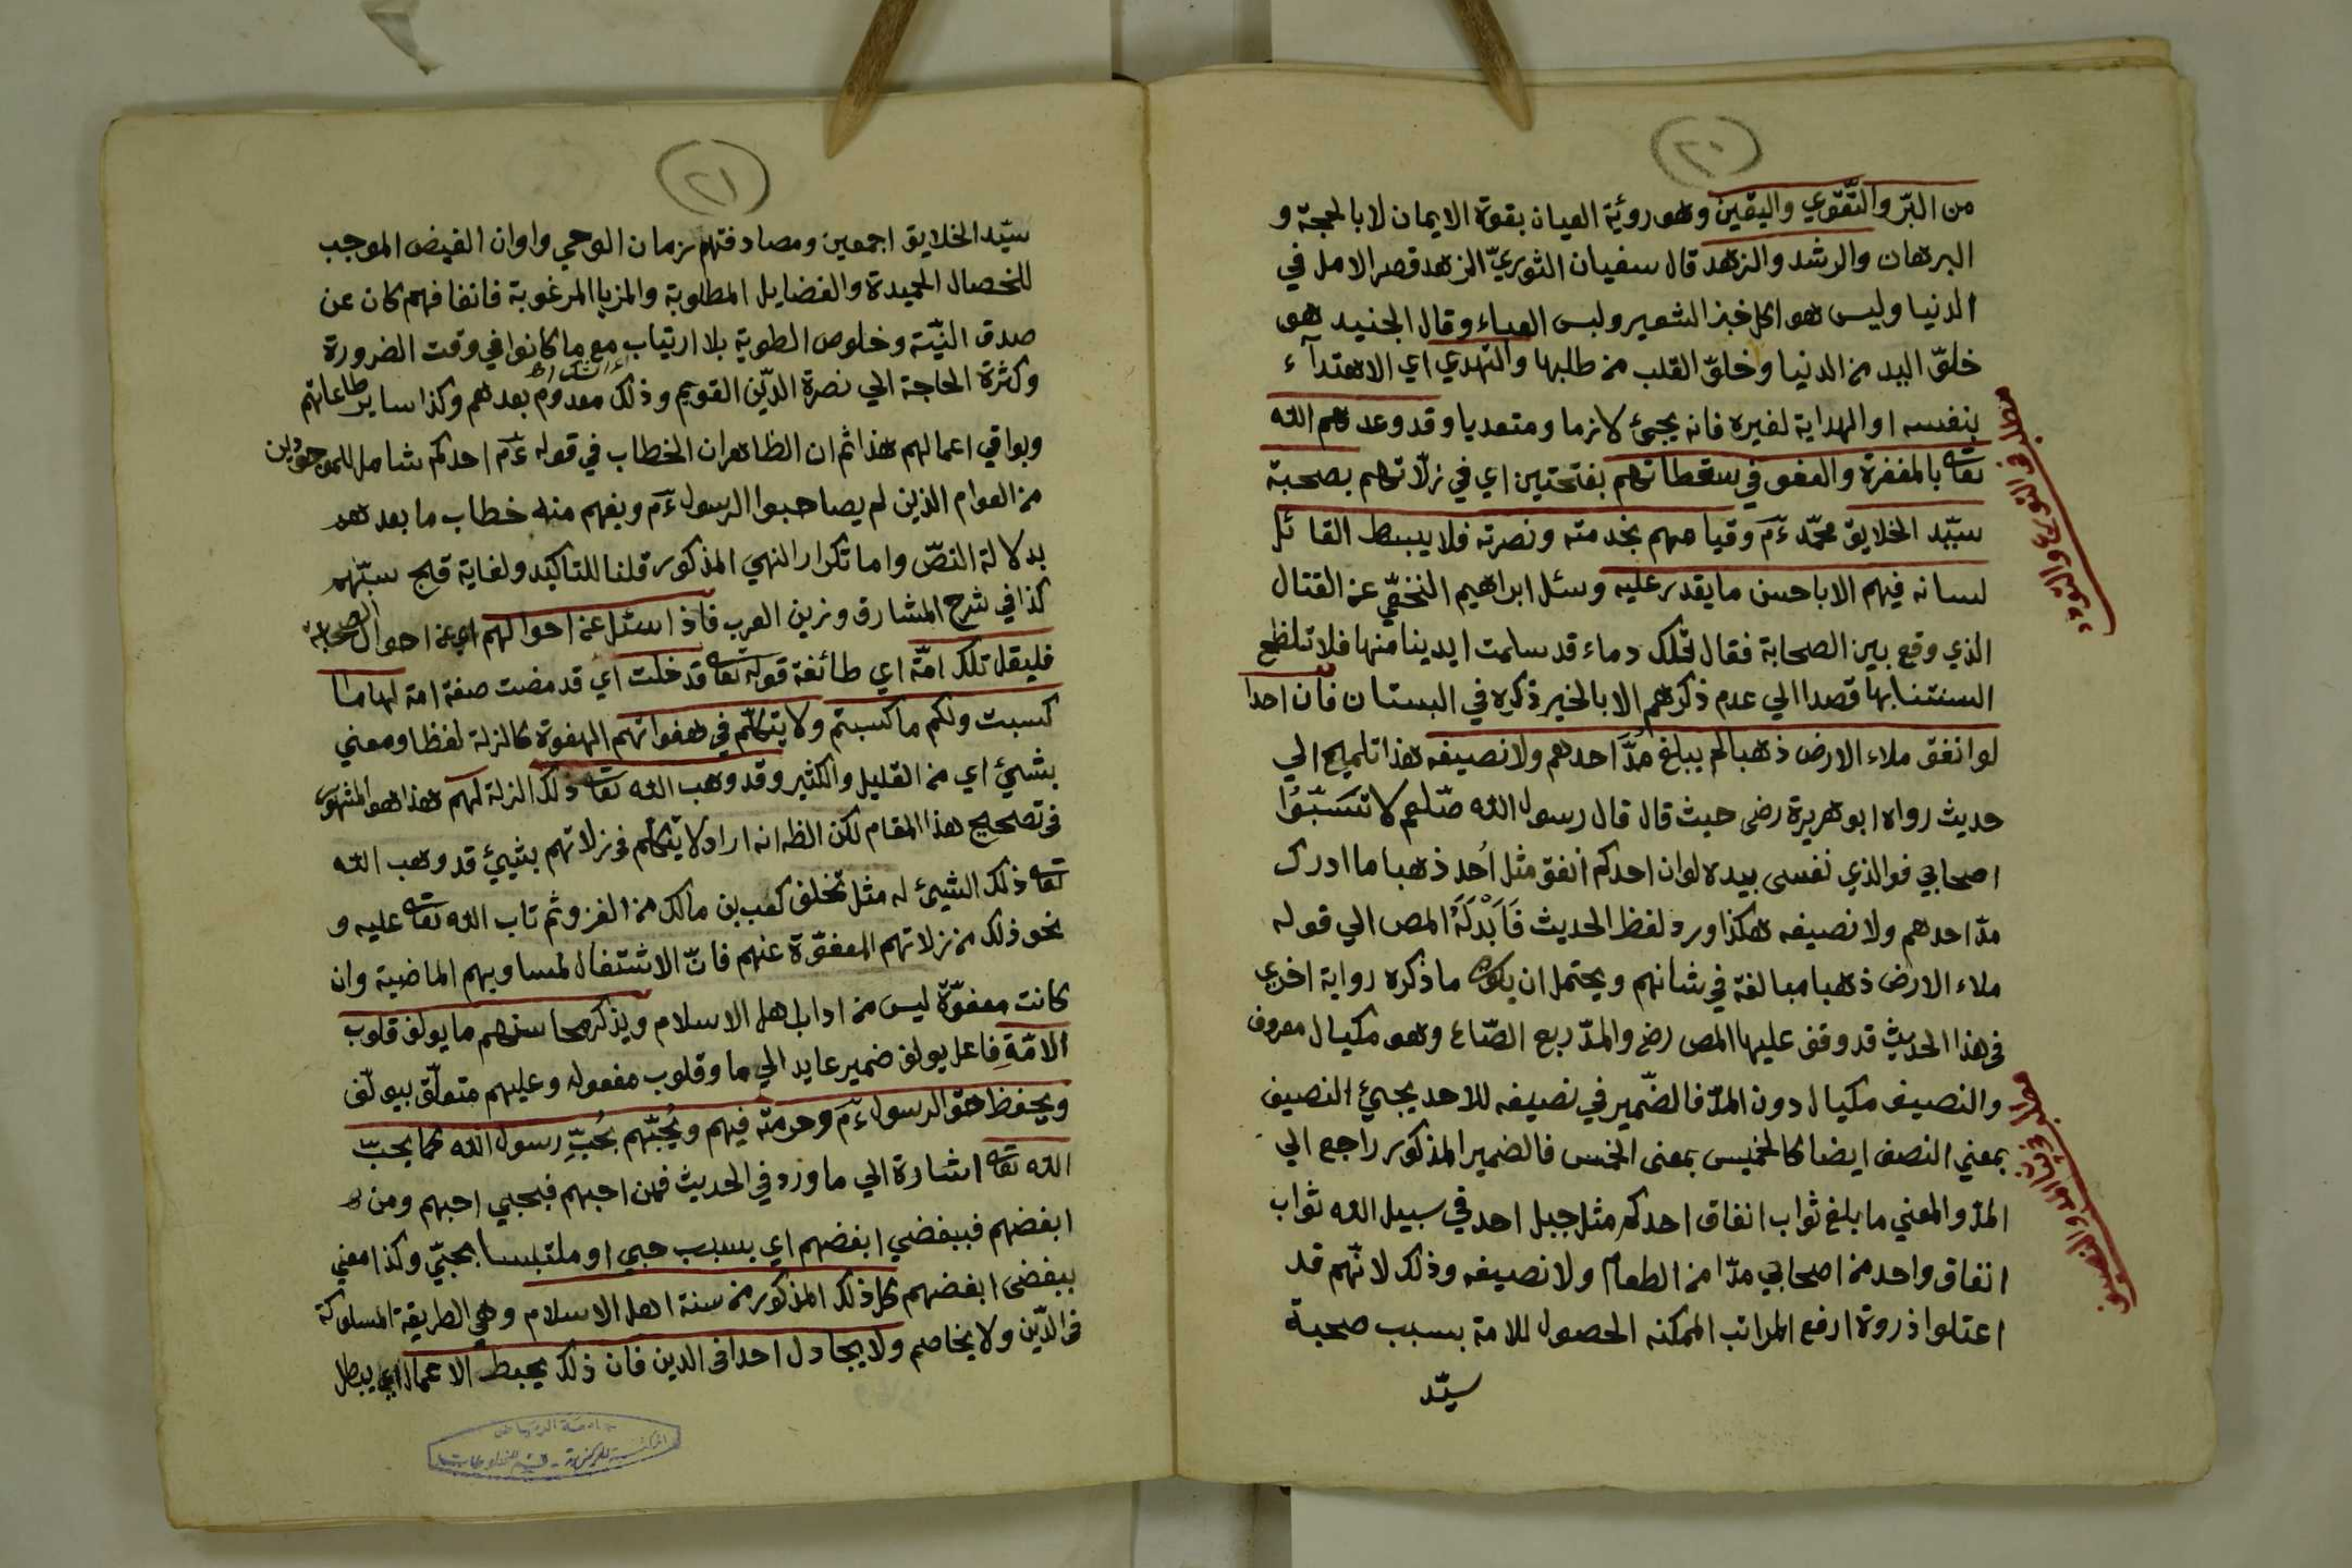 (٢٠)
من البرّ والتّقوي واليقين وهو رؤية العيان بقوة الايمان لا بالحجة و
البرهان والرشد والزهد قال سفيان الثوريّ الزهد قصر الامل في
الدنيا وليس هو اكل خبز الشعير ولبس العباء وقال الجنيد هو
خلوّ اليد من الدنيا وخلوّ القلب من طلبها والتهدي اي الاهتدآء
بنفسه او الهداية لغيره فانه يجيئ لازما ومتعديا وقد وعدهم الله
تعالى بالمغفرة والعفو في سقطاتهم بفتحتين اي في زلّاتهم بصحبة
سيّد الخلايق محمّد ءم وقيامهم بخدمته ونصرته فلا يبسط القائل
لسانه فيهم الا باحسن ما يقدر عليه وسئل ابراهيم النخعيّ عن القتال
الذي وقع بين الصحابة فقال تلك دماء قد سلمت ايدينا منها فلا تلطخ
السنتنا بها قصدا الي عدم ذكرهم الا بالخير ذكره في البستان فان احدا
لو انفق ملاء الارض ذهبا لم يبلغ مدّ احدهم ولا نصيفه هذا تلميح الي
حديث رواه ابو هريرة رضى حيث قال قال رسول الله صلعم لا تسبّوا
اصحابي فوالذي نفسى بيده لو ان احدكم انفق مثل اُحد ذهبا ما ادرك
مدّ احدهم ولا نصيفه هكذا ورد لفظ الحديث فَاَبْدَلَهُ المص الي قوله
ملاء الارض ذهبا مبالغة في شانهم ويحتمل ان يكون ما ذكره رواية اخري
فى هذا الحديث قد وقف عليها المص رضى والمدّ ربع الصّاع وهو مكيال معروف
والنصيف مكيال دون المدّ فالضّمير في نصيفه للاحد يجيئ النصيف
بمعني النصف ايضا كالخميس بمعنى الخمس فالضمير المذكور راجع الي
المدّ والمعني ما بلغ ثواب انفاق احدكم مثل جبل احد في سبيل الله ثواب
انفاق واحد من اصحابي مدّا من الطعام ولا نصيفه وذلك لانّهم قد
اعتلوا ذروة ارفع المراتب الممكنه الحصول للامة بسبب صحبة
سيّد
(٢١)
سيّد الخلايق اجمعين ومصادفتهم زمان الوحي واوان الفيض الموجب
للخصال الحميدة والفضايل المطلوبة والمزايا المرغوبة فانفاقهم كان عن
صدق النيّة وخلوص الطوية بلا ارتياب مع ما كانوا في وقت الضرورة
وكثرة الحاجة الي نصرة الدّين القويم وذلك معدوم بعدهم وكذا ساير طاعاتهم
وبواقي اعمالهم هذا ثم ان الظاهر ان الخطاب في قوله ءم احدكم شامل للموجودين
من العوام الذين لم يصاحبوا الرسول ءم ويفهم منه خطاب ما بعدهم
بدلالة النصّ واما تكرار النهي المذكور قلنا للتاكيد ولغاية قبح سبّهم
كذا في شرح المشارق وزين العرب فاذا سئل عن احوالهم اي عن احوال الصحابة
فليقل تلك امّة اي طائفة قوله تعالى قد خلت اي قد مضت صفة امة لها ما
كسبت ولكم ما كسبتم ولا يتكلّم في هفواتهم الهفوة كالزلة لفظا ومعني
بشيئ اي من القليل والكثير وقد وهب الله تعالى ذلك الزلة لهم هذا هو المشهور
فى تصحيح هذا المقام لكن الظ انه اراد لا يتكلم فى زلاتهم بشيئ قد وهب الله
تعالى ذلك الشيئ له مثل تخلف كعب بن مالك من الغزو ثم تاب الله تعالى عليه و
نحو ذلك من زلاتهم المعفوّة عنهم فانّ الاشتغال لمساويهم الماضية وان
كانت معفوّة ليس من اداب اهل الاسلام ويذكر محاسنهم ما يولف قلوب
الامّة فاعل يولف ضمير عايد الي ما وقلوب مفعوله وعليهم متعلّق بيولّف
ويحفظ حقّ الرسول ءم وحرمته فيهم ويُحبّهم بحُبّ رسول الله كما يحبّ
الله تعالى اشارة الي ما ورد في الحديث فمن احبهم فبحبي احبهم ومن
ابغضهم فببغضي ابغضهم اي بسبب حبي او ملتبسا بحبّي وكذا معني
ببغضى ابغضهم كل ذلك المذكور من سنة اهل الاسلام وهي الطريقة المسلوكة
فى الدّين ولا يخاصم ولا يجادل احدا فى الدين فان ذلك يحبط الاعمال اي يبطل
جامعة الرياض
المكتبة المركزية - قسم المخطوطات